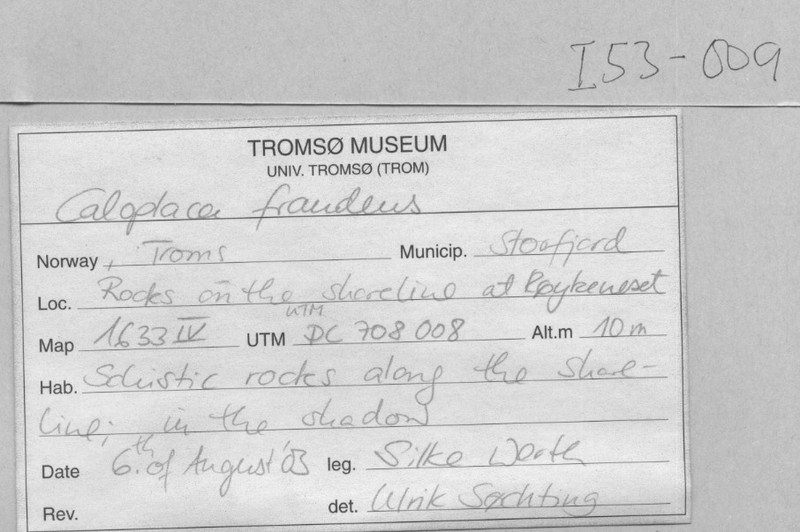 I53-009
TROMSØ MUSEUM
UNIV. TROMSØ (TROM)
Caloplaca fraudens
Norway, Troms Municip. Storfjord
Loc. Rocks on the shoreline at Røykeneset
UTM
Map 1633 IV UTM DC 708 008 Alt.m 10 m
Hab. Schistic rocks along the shore-
line; in the shadow
Date 6.th of August '03 leg. Silke Werth
Rev. det. Ulrik Søchting